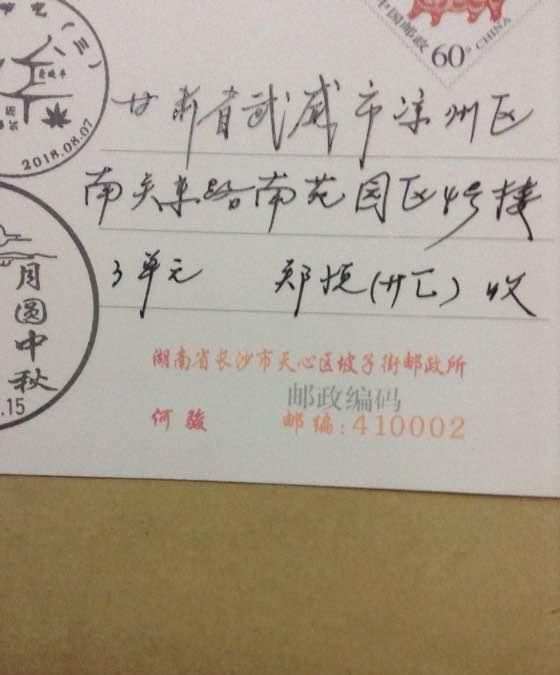 (三)
2018.08.07
中国邮政 60分 CHINA
甘肃省武威市凉州区
南关东路南苑园区4号楼
3单元 郑恒(廿匸)收
月圆中秋
.15
湖南省长沙市天心区坡子街邮政所
邮政编码
何骏 邮编:410002